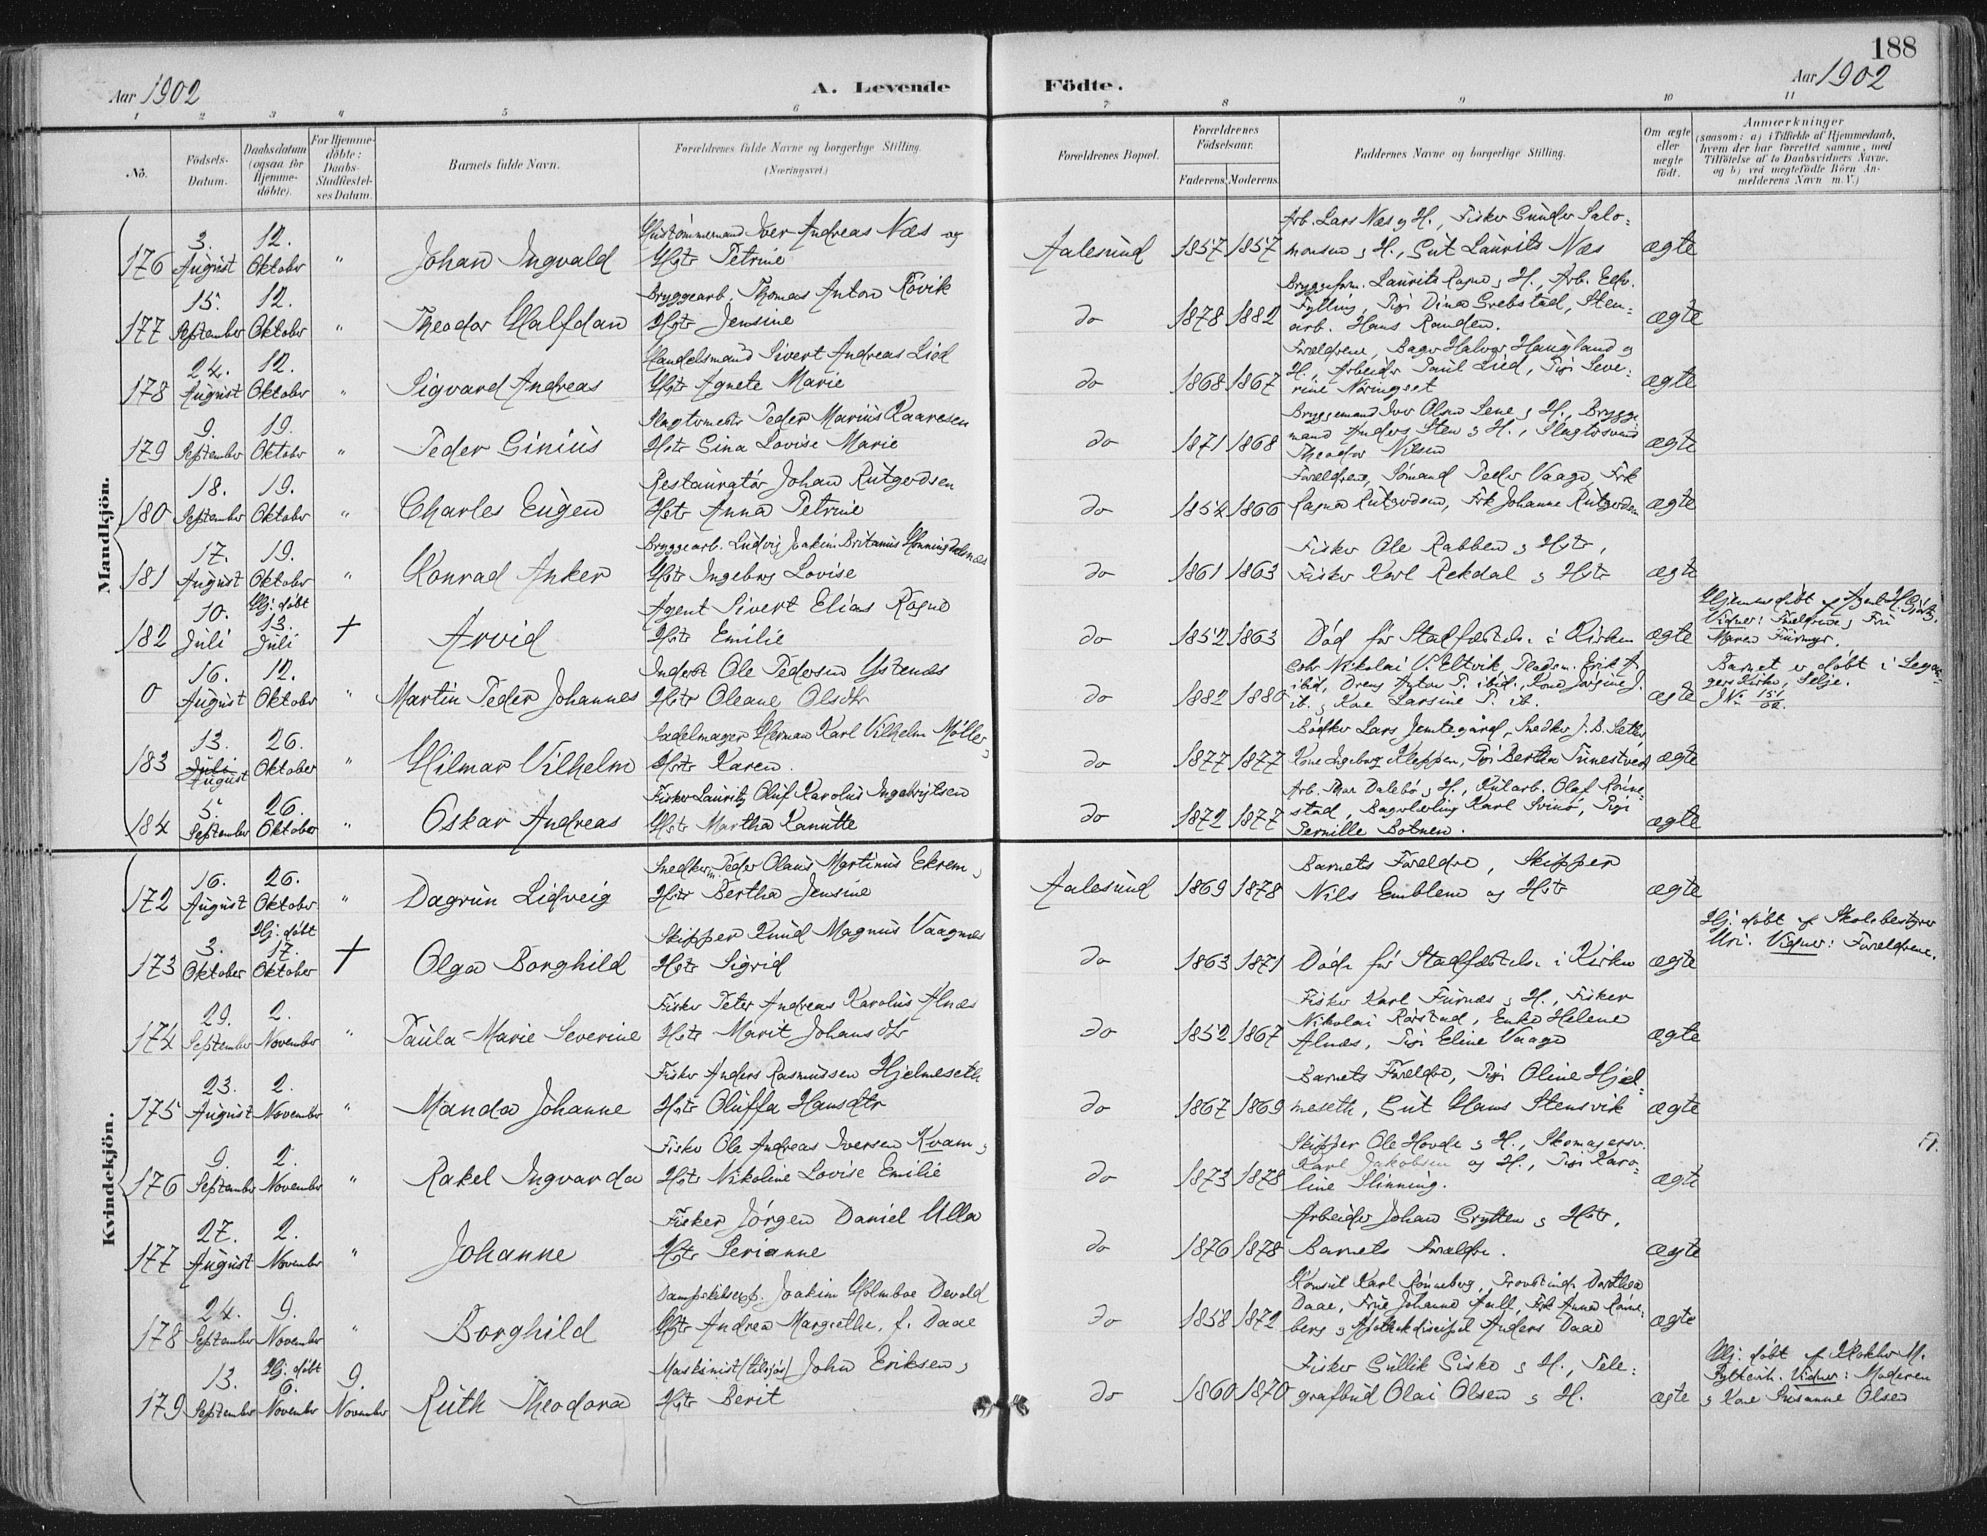 188
Aar 1902
A. Levende
Födte.
Aar 1902
1 2 3 4 5 6 7 8 9 10 11
No.
Födsels-Datum.
Daabsdatum (ogsaa for Hjemme-döbte).
For Hjemme-döbte: Daabs-Stadfæstel-ses Datum.
Barnets fulde Navn.
Forældrenes fulde Navne og borgerlige Stilling.
(Næringsvei.)
Forældrenes Bopæl.
Forældrenes Födselsaar.
Faderens. Moderens.
Faddernes Navne og borgerlige Stilling.
Om ægte eller uægte födt.
Anmærkninger
(saasom: a) i Tilfælde af Hjemmedaab, hvem der har forrettet samme, med Tilföielse af to Daabsvidners Navne. og b) ved uægtefödte Börn An-melderens Navn m. V.)
Mandkjön.
176 3. August 12. Oktober " Johan Ingvald
Iver Andreas Næs og
Hstr Petrine
Aalesund 1857 1857
Arb. Lars Næs og H., Fisker Gunder Salo-
monsen og H., Gut Laurits Næs
ægte
177 15. September 12. Oktober " Theodor Halfdan
Bryggearb. Thomas Anton Røvik
Hstr Jensine
do 1878 1882
Bryggeform. Laurits Rogne og H., Arb.
Fylling, Pigi Dina Grebstad, Sten-
arb. Hans Randen.
ægte
178 24. August 12. Oktober " Sigvard Andreas
Handelsmand Sivert Andreas Lied
Hstr Agnete Marie
do 1868 1867
Forældrene, Bager Halvor Haugland og
H., Arbeider Paul Lied, Pigi Seve-
rine Nøringset
ægte
179 9. September 19. Oktober " Peder Ginius
Slagtermester Peder Marius Kaaresen
Hstr Gina Lovise Marie
do 1871 1868
Bryggemand Iver Olsen Lene og H., Brygge
mand Anders Sten og H., Slagtersvend
Theodor Nilsen
ægte
180 18. September 19. Oktober " Charles Eugen
Restauratør Johan Rutgerdsen
Hstr Anna Petrine
do 1854 1866
Forældrene, Sømand Peder Vaage, Frk
Ragna Rutgerdsen, Frk Johanne Rutgerdsen
ægte
181 17. August 19. Oktober " Konrad Anker
Bryggearb. Ludvig Joakim Britanus Honningdalsnes
Hstr Ingeborg Lovise
do 1861 1863
Fisker Ole Rabben og Hstr,
Fisker Karl Rekdal og Hstr
ægte
182 10. Juli Hj. døbt 13. Juli + Arvid
Agent Sivert Elias Rogne
Hstr Emilie
do 1852 1863
Død før Stadfæstelse i Kirken
ægte
Hjemmedøbt af Agent H.
Vidner: Forældrene og Fru
Maren Furmyr.
0 16. August 12. Oktober " Martin Peder Johannes
Inderst Ole Pedersen Ystenes
Hstr Oleane Olsdtr
do 1882 1880
Nikolai V. Eltvik, Pladsm. Erik A.
ibid, Dreng Anton P. ibid., Kone Jørgine J.
ib. og Kone Larsine P. ib.
ægte
Barnet er døbt i
Kirke, Selje.
No 151/02.
183 13. Juli August 26. Oktober " Hilmar Vilhelm
Sadelmager Herman Karl Vilhelm Møller
Hstr Karen.
do 1877 1877
Bødker Lars Jemtegård, Snedker J. B. Sætre
Kone Ingeborg Kleppen, Pigi Bertha Tunestveit
ægte
184 5. September 26. Oktober " Oskar Andreas
Fisker Lauritz Oluf Karolus Ingebrigtsen
Hstr Martha Kanutte
do 1872 1877
Arb. Mar Dalebø og H., Kularb. Olaf Røine-
stad, Bagerlærling Karl Svinø, Pigi
Pernille Botnen.
ægte
Kvindekjön.
172 16. August 26. Oktober " Dagrun Lidveig
Snedkerm Peder Olaus Martinus Ekrem,
Hstr Bertha Jensine
Aalesund 1869 1878
Barnets Forældre, Skipper
Nils Emblem og Hstr
ægte
173 3. Oktober Hj. døbt 17. Oktober + Olga Borghild
Skipper Knud Magnus Vaagnæs
Hstr Sigrid
do 1863 1871
Døde før Stadfæstelse i Kirken
ægte
Hj. døbt af Skolebestyrer
Uri. Vidner: Forældrene.
174 29. September 2. November " Paula Marie Severine
Fisker Peter Andreas Karolus Alnæs
Hstr Marit Johansdtr
do 1852 1867
Fisker Karl Furnæs og H., Fisker
Nikolai Rørstad, Enke Helene
Alnæs, Pigi Eline Vaage
ægte
175 23. August 2. November " Manda Johanne
Fisker Anders Rasmussen Hjelmeseth
Hstr Oluffa Hansdtr
do 1867 1869
Barnets Forældre, Pigi Oline Hjel-
meseth, Gut Hans Stensvik
ægte
176 9. September 2. November " Rakel Ingvarda
Fisker Ole Andreas Iversen Kvam,
Hstr Nikoline Lovise Emilie
do 1873 1878
Skipper Ole Hovde og H., Skomagersv.
Karl Jakobsen og H., Pigi Karo-
line Slinning.
ægte
177 27. August 2. November " Johanne
Fisker Jørgen Daniel Ulla
Hstr Serianne
do 1876 1878
Arbeider Johan Grytten og Hstr,
Barnets Forældre.
ægte
178 24. September 9. November " Borghild
Dampskibsexp. Joakim Holmboe Devold
Hstr Andrea Margrethe, f. Daae
do 1858 1872
Konsul Karl Rønneberg, Provstinde Dorthea
Daae, Frue Johanne Aall, Frk Anna Rønne-
berg og Apothekdiscipel Anders Daae
ægte
179 13. September Hj. døbt 6. November 9. November Ruth Theodora
Maskinist (tilsjøs) John Eriksen og
Hstr Berit
do 1860 1870
Fisker Gullik Giske og H., Tele-
grafbud Olai Olsen og H.
ægte
Hj. døbt af M.
Vidner: Moderen
og Kone Susanne Olsen